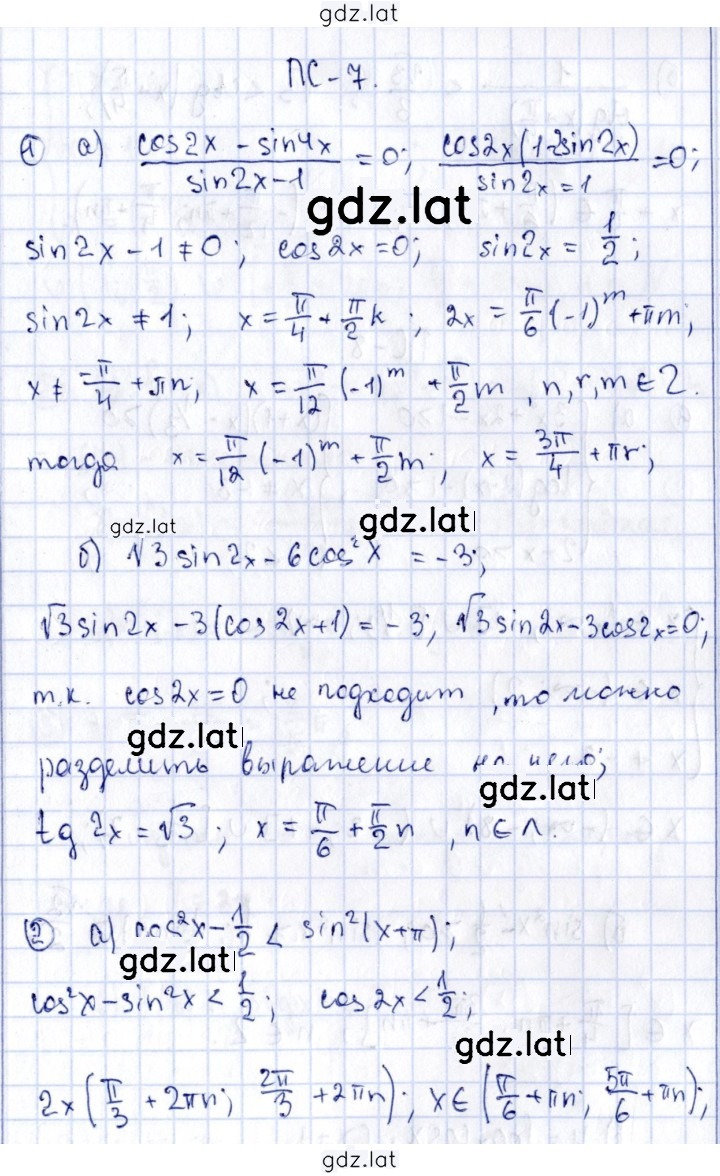 gdz.lat
ПС-7.
① а) (cos2x - sin4x)/(sin2x-1) = 0; (cos2x(1-2sin2x))/(sin2x=1) = 0;
gdz.lat
sin2x - 1 ≠ 0; cos2x = 0; sin2x = 1/2;
sin2x ≠ 1; x = π/4 + π/2 k; 2x = π/6 (-1)^m + πm;
x ≠ -π/4 + πn; x = π/12 (-1)^m + π/2 m, n, r, m ∈ Z.
тогда x = π/12 (-1)^m + π/2 m; x = 3π/4 + πr;
gdz.lat gdz.lat
б) √3 sin2x - 6cos²x = -3;
√3 sin2x - 3(cos2x+1) = -3; √3 sin2x - 3cos2x = 0;
т.к. cos2x = 0 не подходит, то можно
gdz.lat
разделить выражение на него;
gdz.lat
tg 2x = √3; x = π/6 + π/2 n, n ∈ Λ.
② а) cos²x - 1/2 < sin²(x+π);
gdz.lat
cos²x - sin²x < 1/2; cos2x < 1/2;
gdz.lat
2x (π/3 + 2πn; 2π/3 + 2πn); x ∈ (π/6 + πn; 5π/6 + πn);
gdz.lat